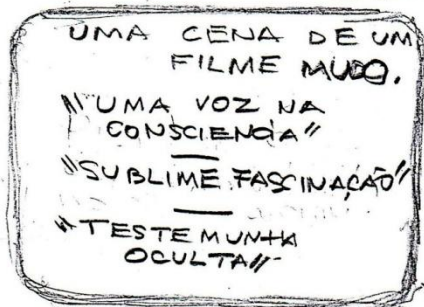 UMA CENA DE UM
FILME MUDO.
"UMA VOZ NA
CONSCIENCIA"
"SUBLIME FASCINAÇÃO"
"TESTEMUNHA
OCULTA"